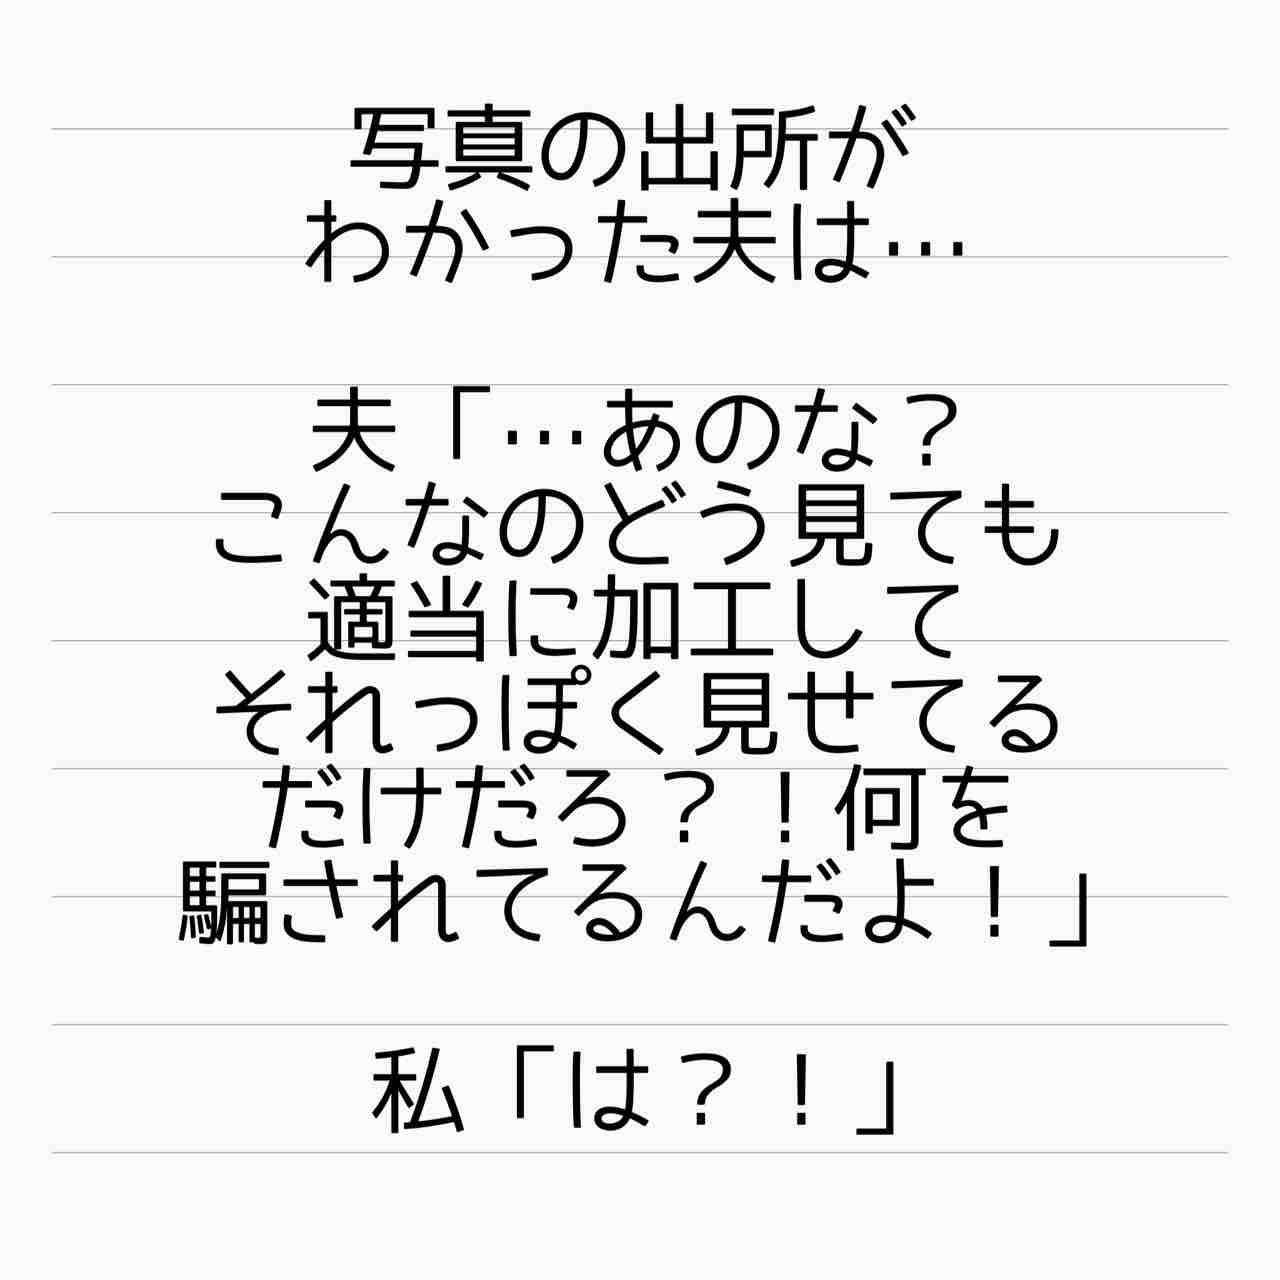 写真の出所が
わかった夫は…
夫「…あのな？
こんなのどう見ても
適当に加工して
それっぽく見せてる
だけだろ？！何を
騙されてるんだよ！」
私「は？！」